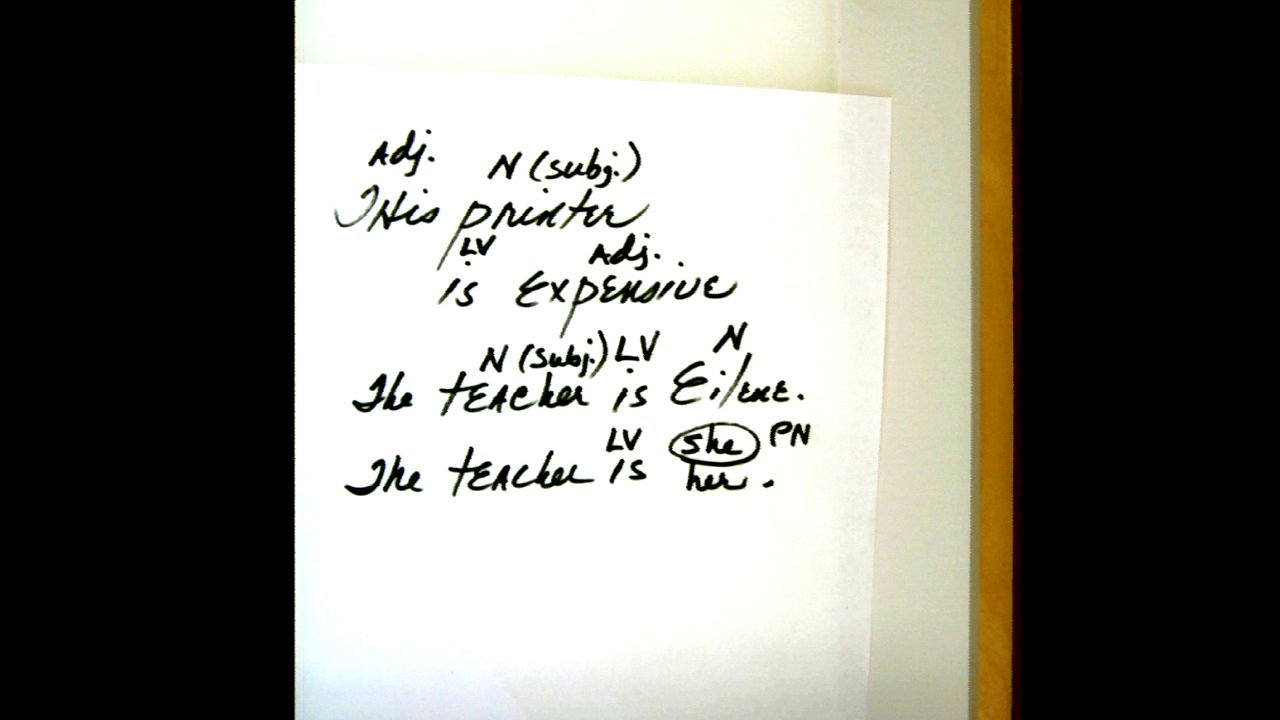 Adj. N (subj.)
This printer
LV Adj.
is Expensive
N (subj.) LV N
The teacher is Eilene.
LV she PN
The teacher is her.